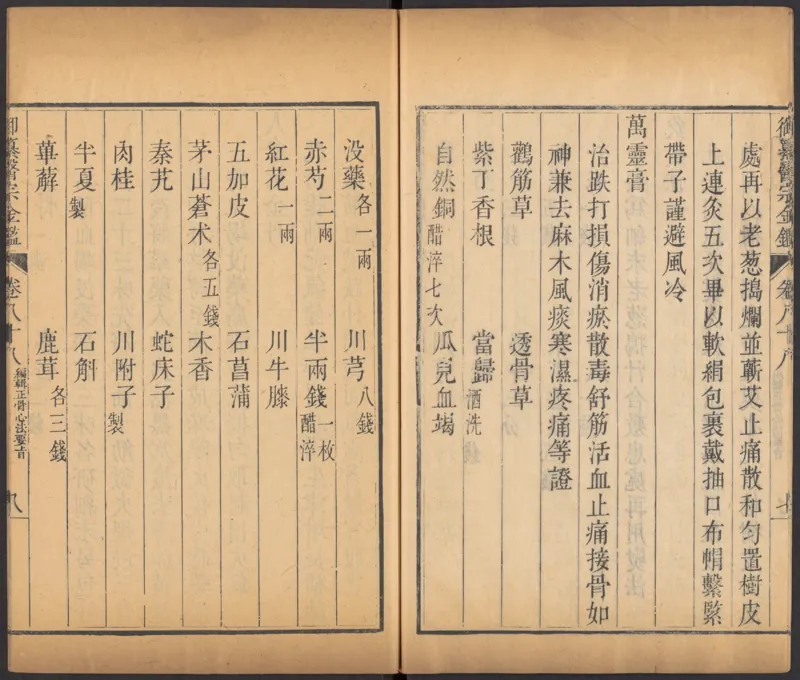 處再以老葱搗爛並蘄艾止痛散和匀置樹皮
上連灸五次畢以軟絹包裹戴抽口布帽繫緊
帶子謹避風冷
萬靈膏
治跌打損傷消瘀散毒舒筋活血止痛接骨如
神兼去麻木風痰寒濕疼痛等證
鸛筋草 透骨草
紫丁香根 當歸酒洗
自然銅醋淬七次 瓜兒血竭
御纂醫宗金鑑 卷八十八 七
没藥各一兩 川芎八錢
赤芍二兩 半兩錢一枚醋淬
紅花一兩 川牛膝
五加皮 石菖蒲
茅山蒼术各五錢 木香
秦艽 蛇床子
肉桂 川附子製
半夏製 石斛
萆薢 鹿茸各三錢
御纂醫宗金鑑 卷八十八 編輯正骨心法要旨 八